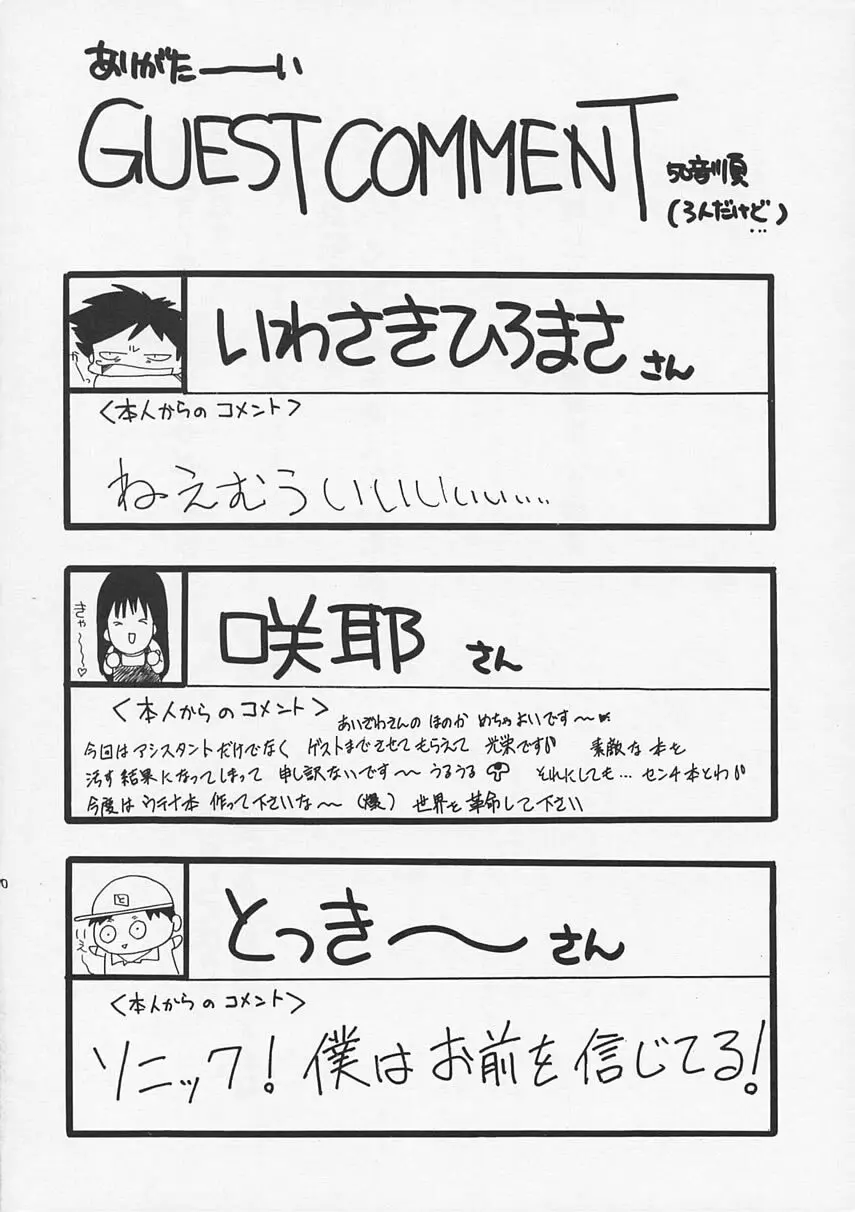 ありがたーーい
GUEST COMMENT
50音順
(3人だけど…)
いわさきひろまささん
かーっ
<本人からのコメント>
ねえむういいいいいい‥‥
咲耶さん
きゃ〜〜〜♡
<本人からのコメント>
あいざわさんの ほのか めちゃよいです〜
今回はアシスタントだけでなく ゲストまでさせてもらえて 光栄です 素敵な本を
汚す結果になってしまって 申し訳ないです〜 うるうる それにしても… センチ本とわ
今度はウテナ本 作って下さいな〜 (爆) 世界を革命して下さい
とっき〜さん
と
いえ
<本人からのコメント>
ソニック! 僕はお前を信じてる!